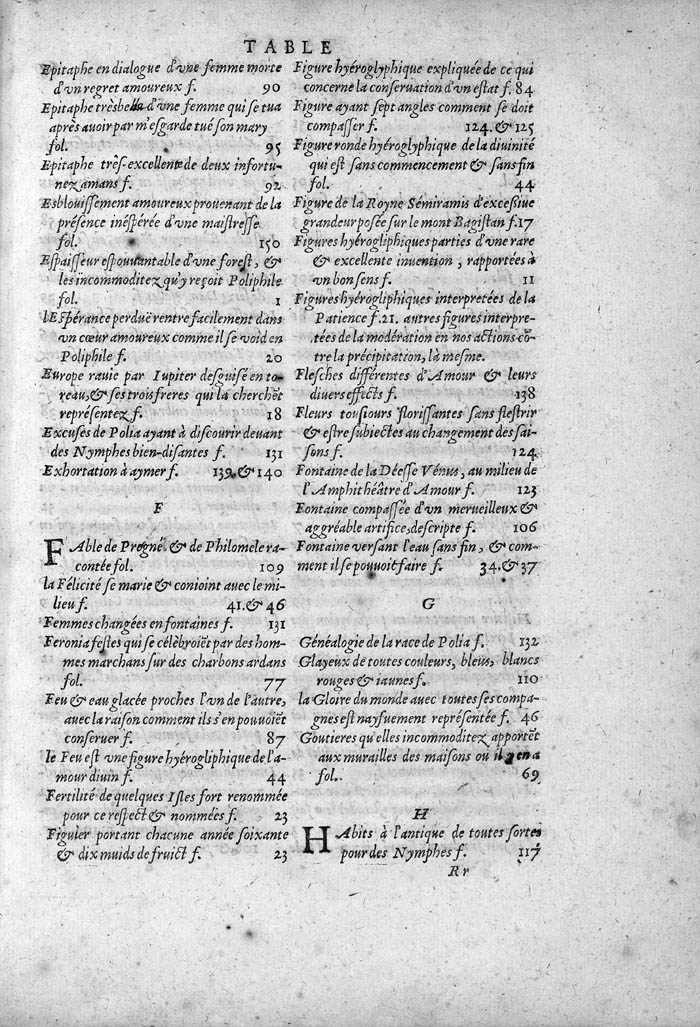 TABLE
Epitaphe en dialogue d'vne femme morte
d'vn regret amoureux f. 90
Epitaphe trèsbelle d'vne femme qui se tua
après auoir par m'esgarde tué son mary
fol. 95
Epitaphe très-excellente de deux infortu-
nez amans f. 92
Esblouissement amoureux prouenant de la
présence inéspérée d'vne maistresse
fol. 150
Espaisseur espouuantable d'vne forest, &
les incommoditez qu'y reçoit Poliphile
fol. 1
l'Espérance perduë rentre facilement dans
vn cœur amoureux comme il se void en
Poliphile f. 20
Europe rauie par Iupiter desguisé en to-
reau, & ses trois freres qui la cherchẽt
représentez f. 18
Excuses de Polia ayant à discourir deuant
des Nymphes bien-disantes f. 131
Exhortation à aymer f. 139. & 140
F
FAble de Progné & de Philomele ra-
contée fol. 109
la Félicité se marie & conioint auec le mi-
lieu f. 41. & 46
Femmes changées en fontaines f. 131
Feronia festes qui se célèbroiẽt par des hom-
mes marchans sur des charbons ardans
fol. 77
Feu & eau glacée proches l'vn de l'autre,
auec la raison comment ils s'en pouuoiẽt
conseruer f. 87
le Feu est vne figure hyérogliphique de l'a-
mour diuin f. 44
Fertilité de quelques Isles fort renommée
pour ce respect & nommées f. 23
Figuier portant chacune année soixante
& dix muids de fruict f. 23
Figure hyéroglyphique expliquée de ce qui
concerne la conseruation d'vn estat f. 84
Figure ayant sept angles comment se doit
compasser f. 124. & 125
Figure ronde hyéroglyphique de la diuinité
qui est sans commencement & sans fin
fol. 44
Figure de la Royne Sémiramis d'excessiue
grandeur posée sur le mont Bagistan f. 17
Figures hyérogliphiques parties d'vne rare
& excellente inuention, rapportées à
vn bon sens f. 11
Figures hyérogliphiques interpretées de la
Patience f. 21. autres figures interpre-
tées de la modération en nos actions cõ-
tre la précipitation, là mesme.
Flesches différentes d'Amour & leurs
diuers effects f. 138
Fleurs tousiours florissantes sans flestrir
& estre subiectes au changement des sai-
sons f. 124
Fontaine de la Déesse Vénus, au milieu de
l'Amphithéâtre d'Amour f. 123
Fontaine compassée d'vn merueilleux &
aggréable artifice, descripte f. 106
Fontaine versant l'eau sans fin, & com-
ment il se pouuoit faire f. 34. & 37
G
Généalogie de la race de Polia f. 132
Glayeux de toutes couleurs, bleus, blancs
rouges & iaunes f. 110
la Gloire du monde auec toutes ses compa-
gnes est nayfuement représentée f. 46
Goutieres qu'elles incommoditez apportẽt
aux murailles des maisons où il y en a
fol. 69
H
HAbits à l'antique de toutes sortes
pour des Nymphes f. 117
Rr